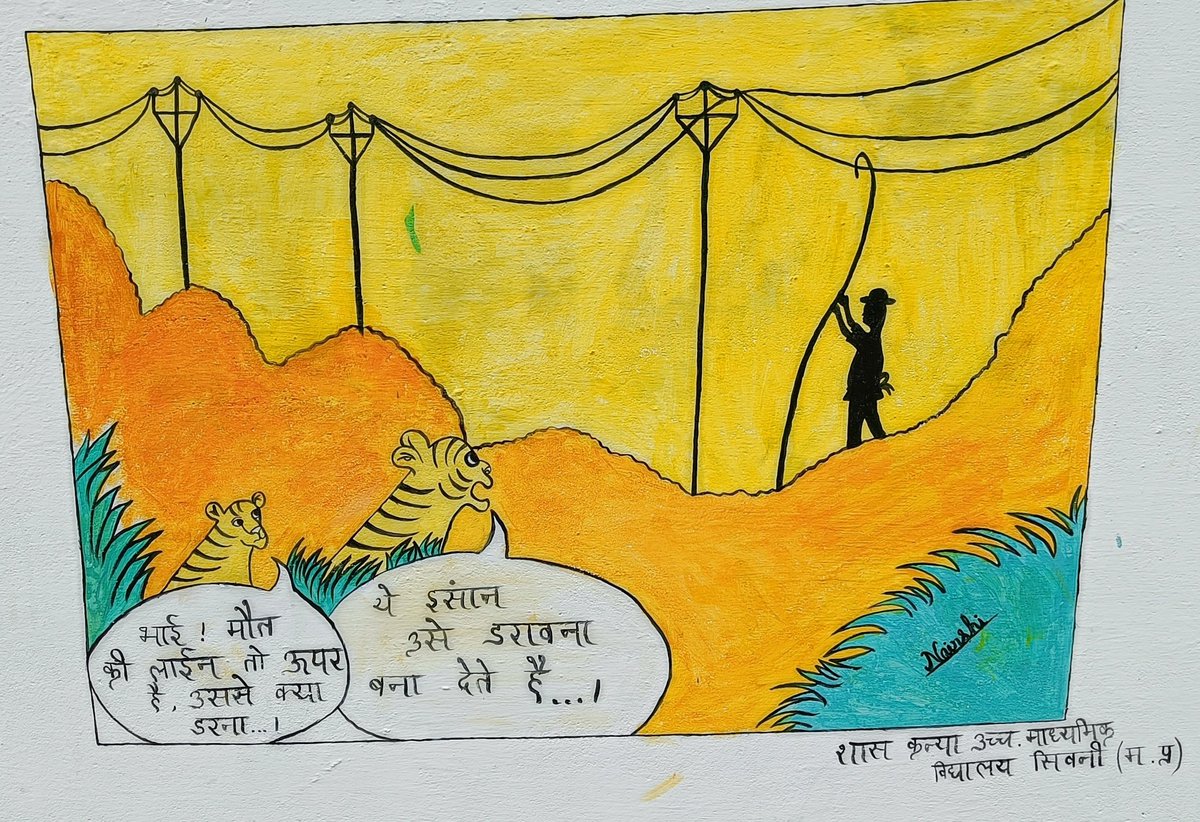 भाई ! मौत
की लाईन तो ऊपर
है, उससे क्या
डरना...।
ये इंसान
उसे डरावना
बना देते है...।
Nainshi
शास कन्या उच्च. माध्यमिक
विद्यालय सिवनी (म.प्र)